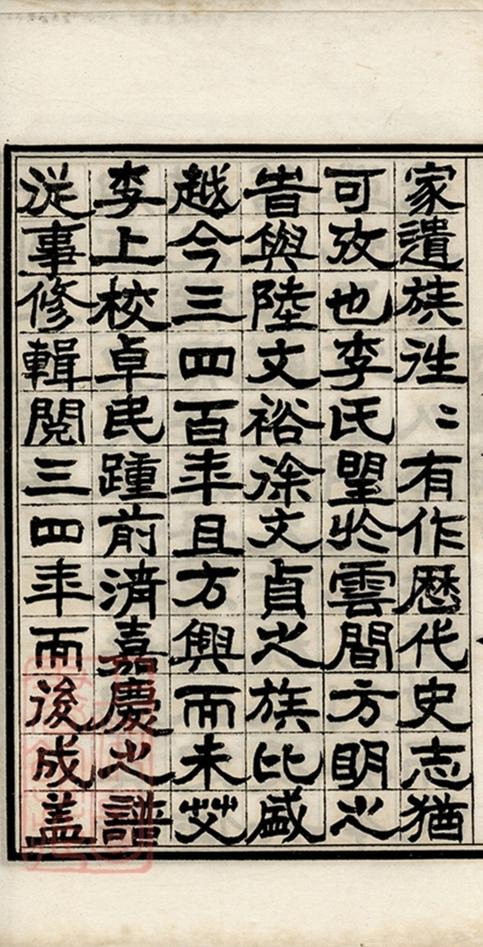 家遺族往〻有作歷代史志猶
可攷也李氏朢於雲間方明之
昔與陸文裕徐文貞之族比盛
越今三四百年且方興而未艾
李上校卓民踵前清嘉慶之譜
從事修輯閱三四年而後成蓋